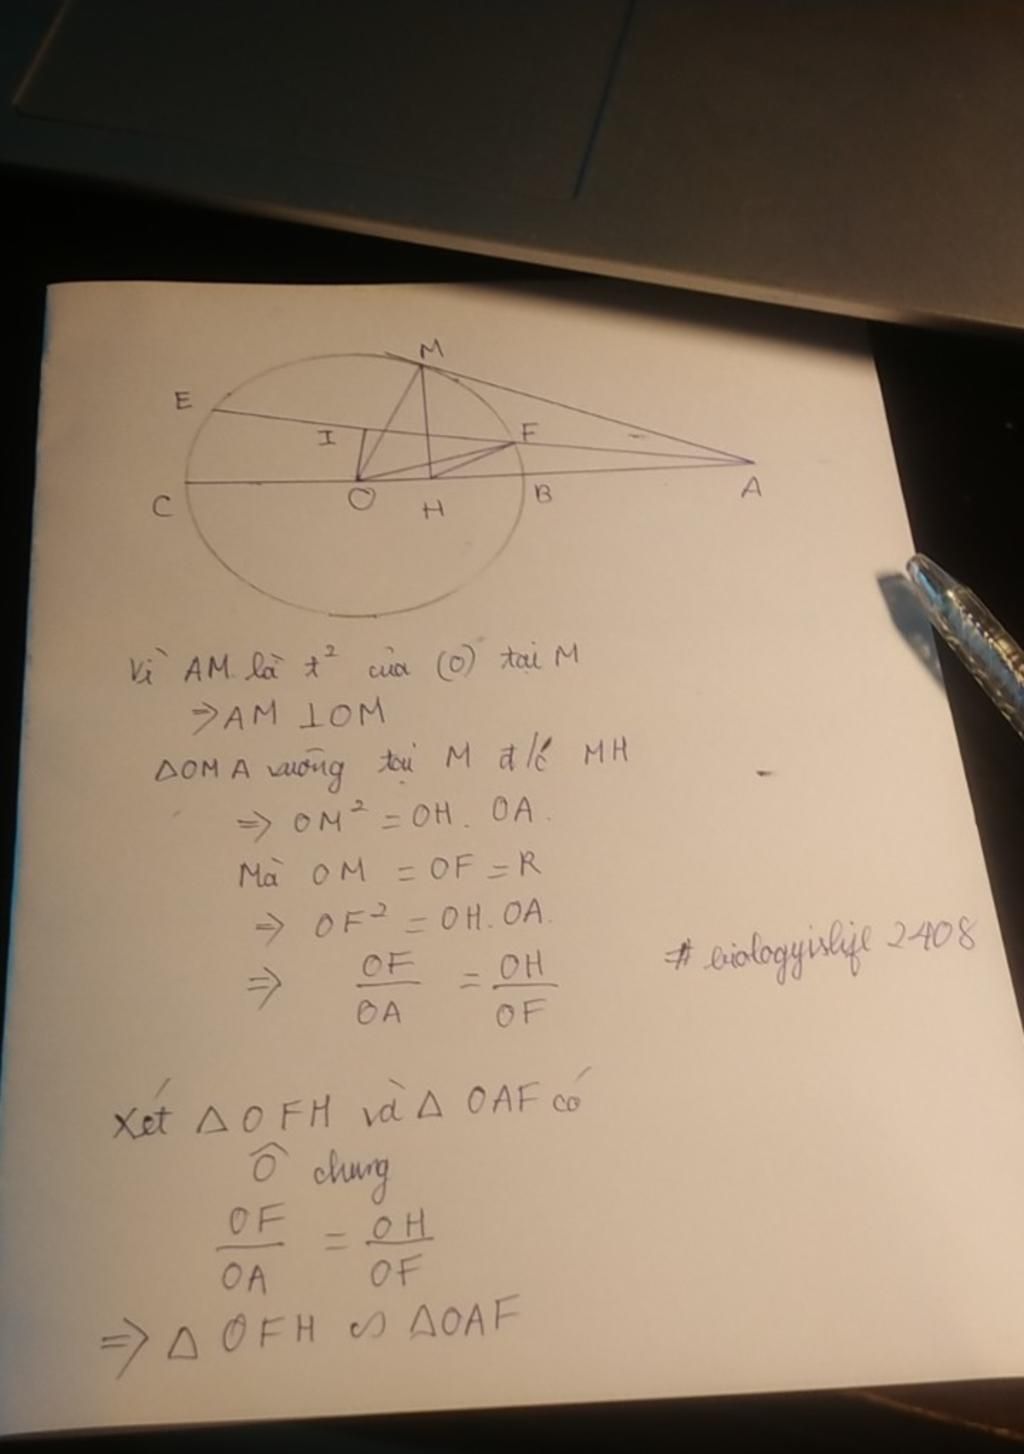 M
E
I
F
C
O
H
B
A
Vì AM là t² của (O) tại M
⇒ AM ⊥ OM
△OMA vuông tại M đ/c MH
⇒ OM² = OH. OA.
Mà OM = OF = R
⇒ OF² = OH.OA.
⇒ OF/OA = OH/OF
# biologyislife 2408
Xét △OFH và △OAF có
Ô chung
OF/OA = OH/OF
⇒ △OFH ∽ △OAF